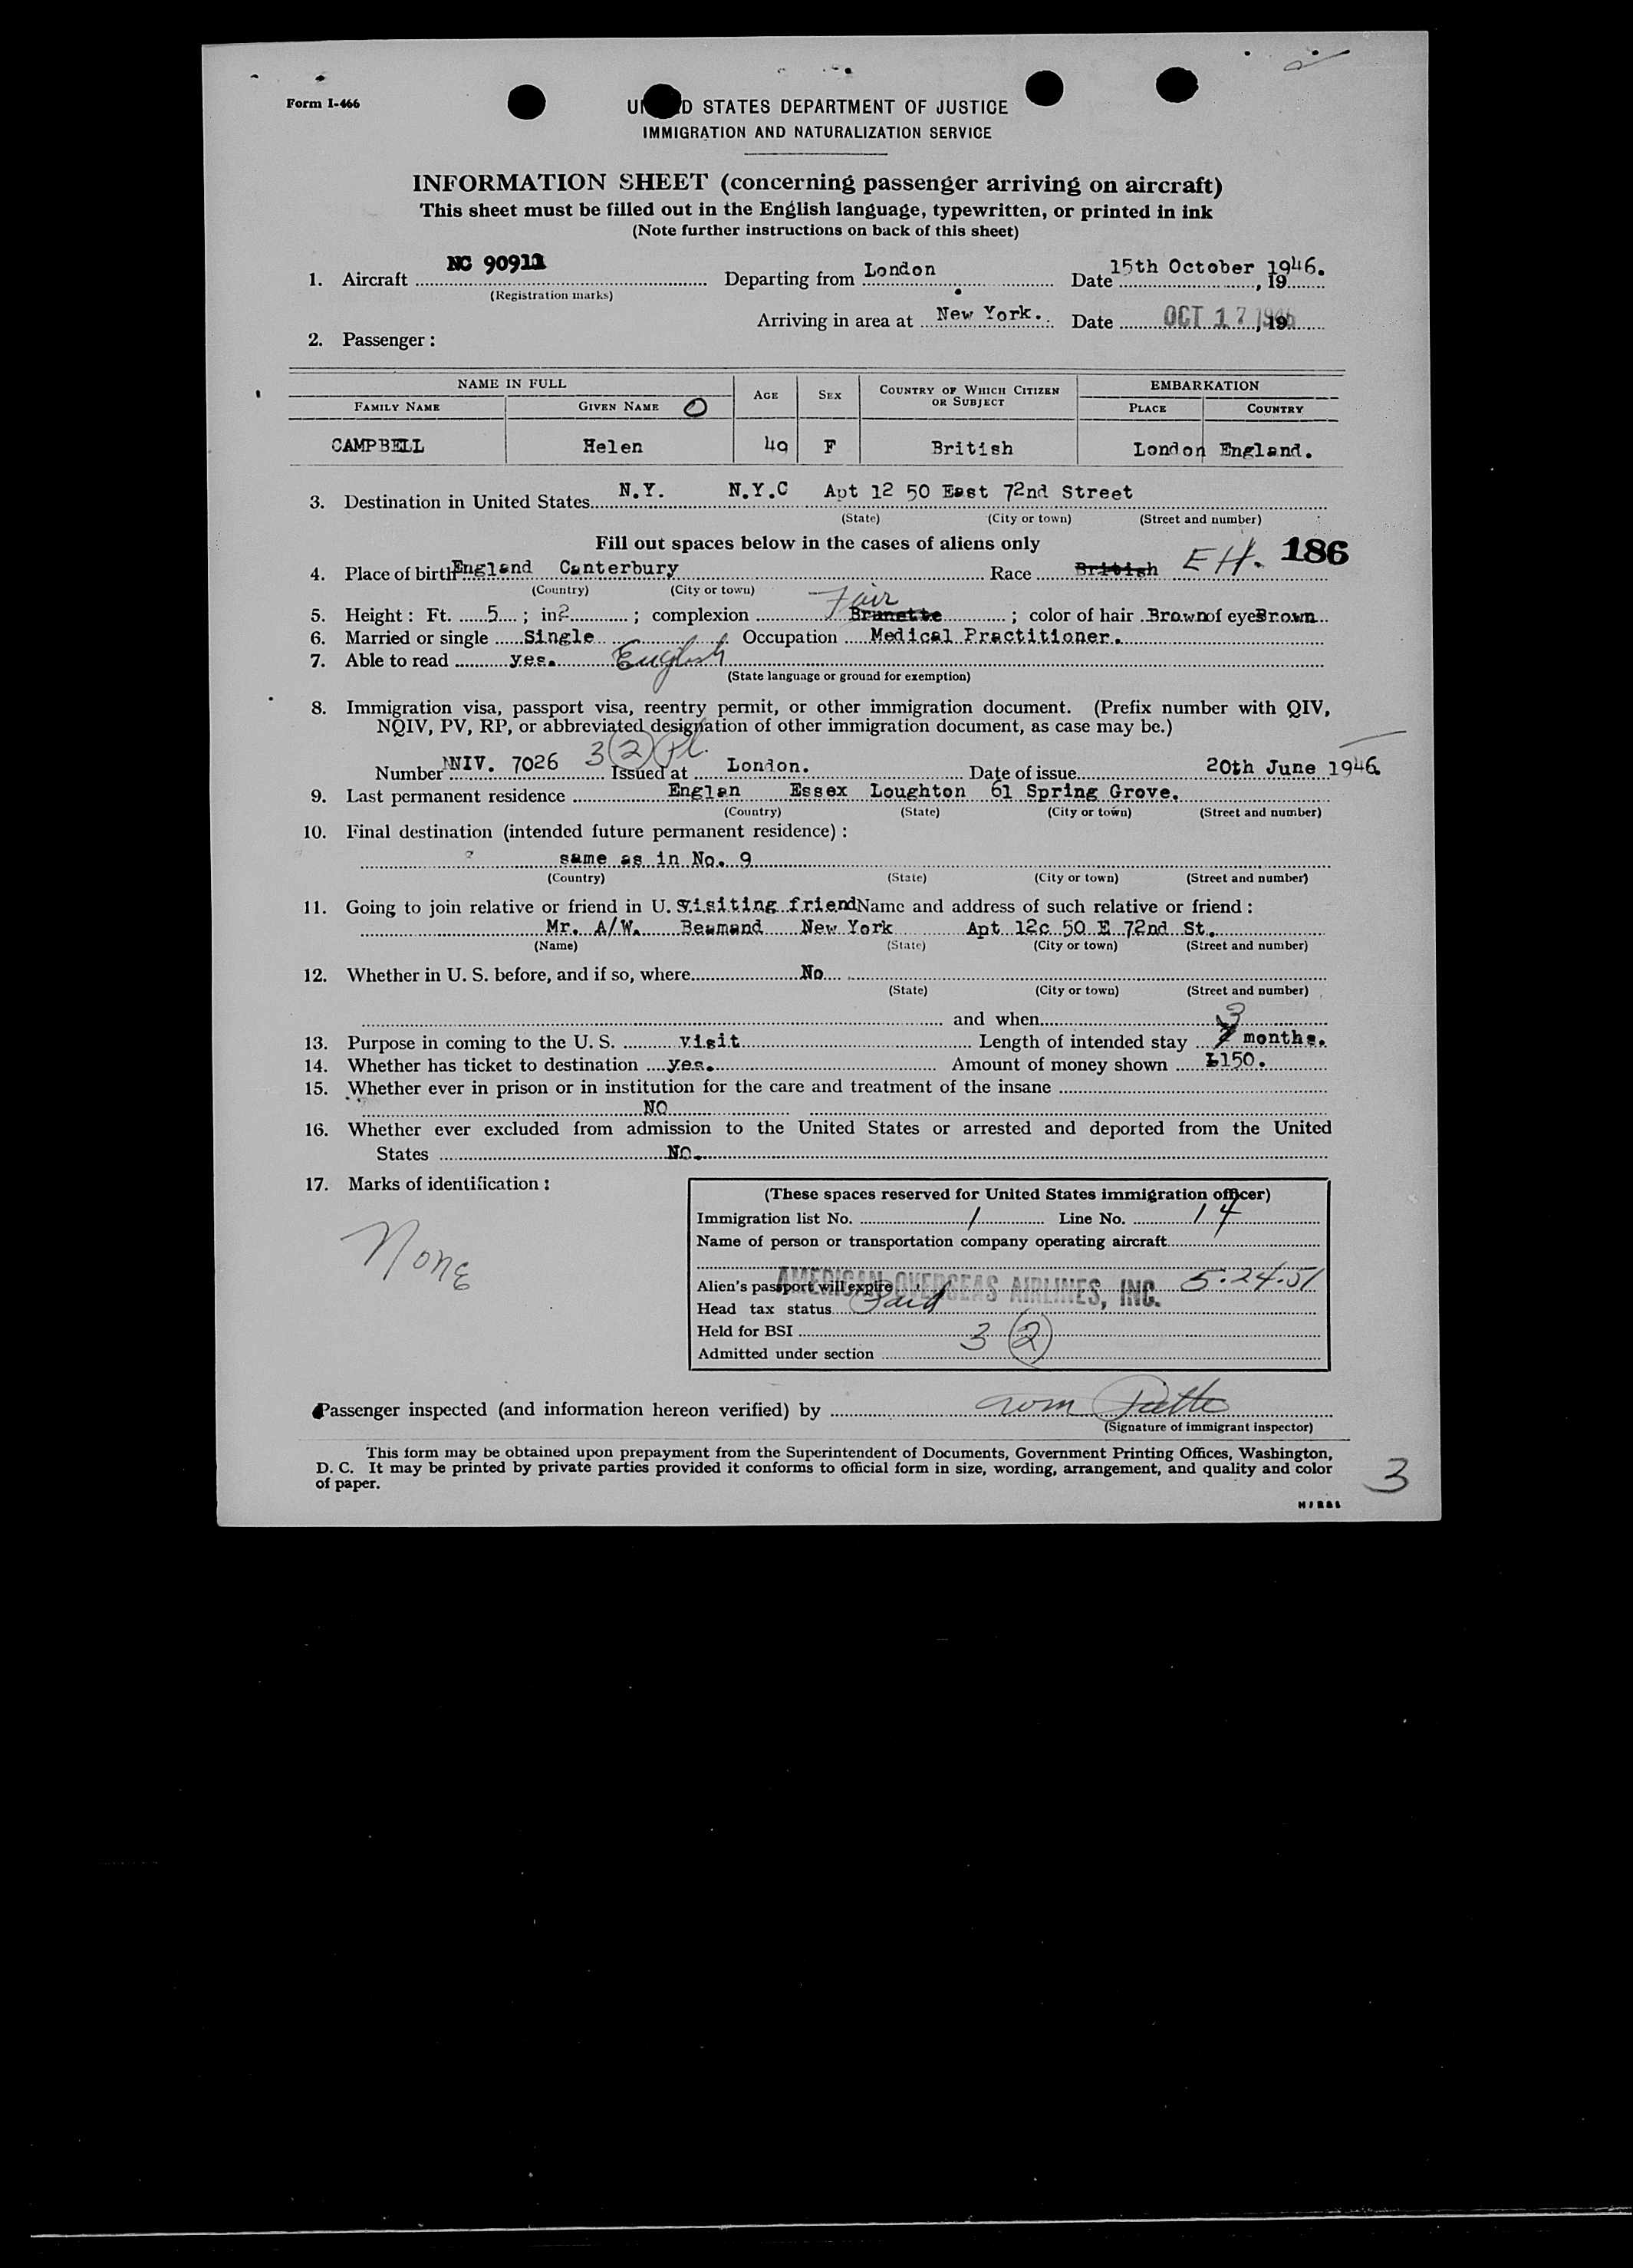 Form I-466
U D STATES DEPARTMENT OF JUSTICE
IMMIGRATION AND NATURALIZATION SERVICE
INFORMATION SHEET (concerning passenger arriving on aircraft)
This sheet must be filled out in the English language, typewritten, or printed in ink
(Note further instructions on back of this sheet)
1. Aircraft NC 90911 Departing from London Date 15th October 1946., 19
(Registration marks)
Arriving in area at New York. Date OCT 17 1946, 19
2. Passenger:
NAME IN FULL AGE SEX COUNTRY OF WHICH CITIZEN OR SUBJECT EMBARKATION
FAMILY NAME GIVEN NAME O PLACE COUNTRY
CAMPBELL Helen 49 F British London England.
3. Destination in United States N.Y. N.Y.C Apt 12 50 East 72nd Street
(State) (City or town) (Street and number)
Fill out spaces below in the cases of aliens only
186
4. Place of birth England Canterbury Race British EH.
(Country) (City or town)
5. Height: Ft. 5; in 2; complexion Brunette Fair; color of hair Brown of eyes Brown
6. Married or single Single Occupation Medical Practitioner.
7. Able to read yes. English
(State language or ground for exemption)
8. Immigration visa, passport visa, reentry permit, or other immigration document. (Prefix number with QIV,
NQIV, PV, RP, or abbreviated designation of other immigration document, as case may be.)
3 (2)
Number NIV. 7026 Issued at London. Date of issue 20th June 1946.
9. Last permanent residence Englan Essex Loughton 61 Spring Grove.
(Country) (State) (City or town) (Street and number)
10. Final destination (intended future permanent residence):
same as in No. 9
(Country) (State) (City or town) (Street and number)
11. Going to join relative or friend in U. S. Visiting friend Name and address of such relative or friend:
Mr. A/W. Beamand New York Apt 12c 50 E 72nd St.
(Name) (State) (City or town) (Street and number)
12. Whether in U. S. before, and if so, where No
(State) (City or town) (Street and number)
and when
13. Purpose in coming to the U. S. visit Length of intended stay 3 months.
14. Whether has ticket to destination yes. Amount of money shown £150.
15. Whether ever in prison or in institution for the care and treatment of the insane
NO
16. Whether ever excluded from admission to the United States or arrested and deported from the United
States NO.
17. Marks of identification:
None
(These spaces reserved for United States immigration officer)
Immigration list No. 1 Line No. 14
Name of person or transportation company operating aircraft
AMERICAN OVERSEAS AIRLINES, INC.
Alien's passport will expire 5-24-51
Head tax status Paid
Held for BSI
Admitted under section 3 (2)
Passenger inspected (and information hereon verified) by Wm
(Signature of immigrant inspector)
This form may be obtained upon prepayment from the Superintendent of Documents, Government Printing Offices, Washington,
D. C. It may be printed by private parties provided it conforms to official form in size, wording, arrangement, and quality and color
of paper.
3